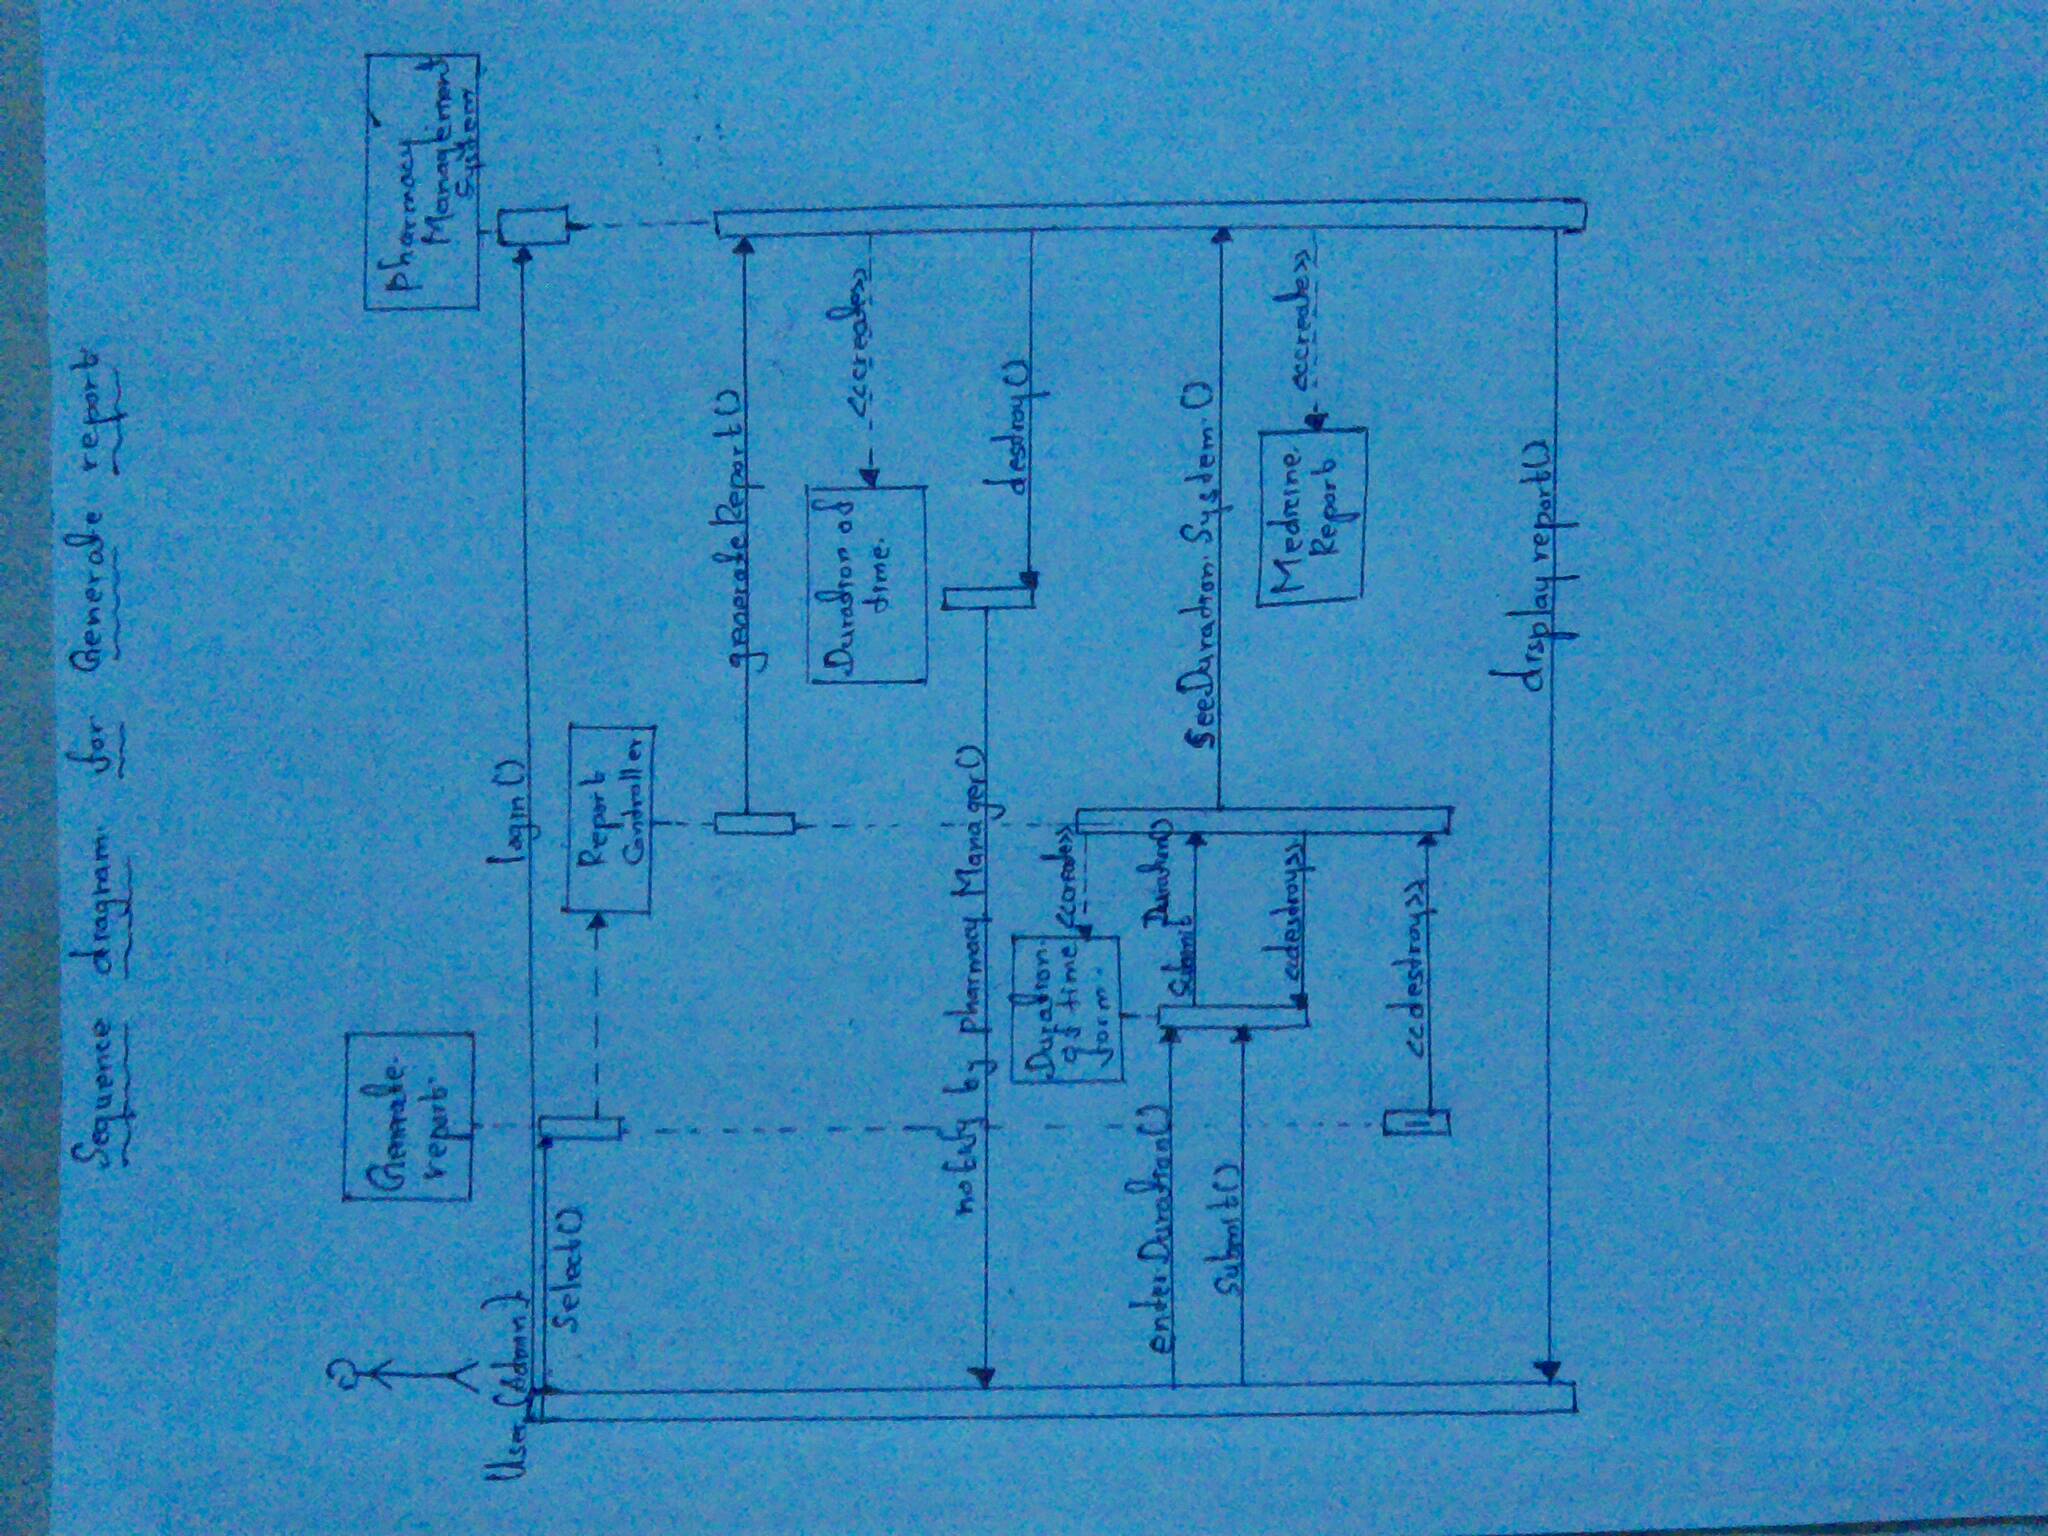 Sequence diagram for Generate report
Generate
report
Pharmacy
Management
System
User (Admin)
login()
Select()
Report
Controller
generateReport()
Duration of
time
<<create>>
notify by pharmacy Manager()
destroy()
Duration
of time
form
<<create>>
enterDuration()
Submit Duration()
SeeDuration System ()
Submit()
<<destroy>>
Medicine
Report
<<create>>
<<destroy>>
display report()